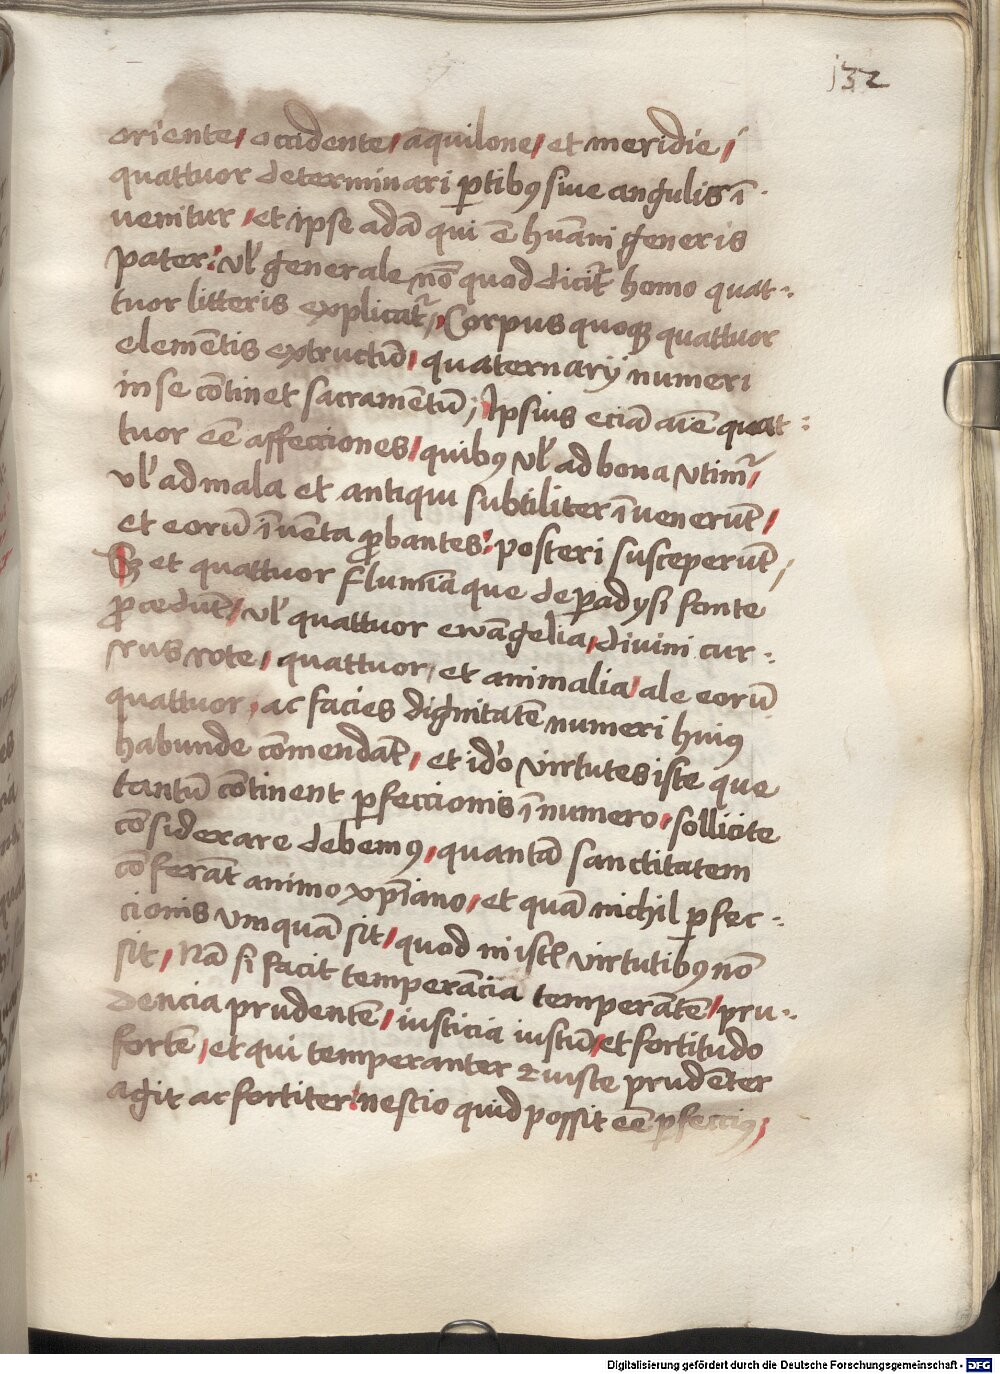 132
oriente / occidente / aquilone / et meridie /
quattuor determinari ꝑtibꝰ siue angulis ī ·
uenitur / et ipse adā qui ē huāni generis
pater : vl' generale nō quod dicit᷑ homo quat-
tuor litteris explicat᷑ / Corpus quoqꝫ quattuor
elemētis extructū / quaternarij numeri
in se cōtinet sacramētū ; Ipsius eciā aīe quat-
tuor eē affecciones / quibꝰ vl' ad bona vtim᷑ /
vl' ad mala et antiqui subtiliter īuenerūt /
et eorū īuēta ꝓbantes : posteri susceperūt ;
Sꝫ et quattuor flumīa que de ꝑadysi fonte
ꝓcedūt / vl' quattuor ewāgelia / diuini cur-
rus rote / quattuor / et animalia / ale eorū
quattuor / ac facies dignitatē numeri huiꝰ
habunde cōmendāt / et id'o virtutes iste que
tantū cōtinent ꝑfeccionis ī numero / sollicite
cōsiderare debemꝰ / quantā sanctitatem
cōferāt animo xp̄iano / et quā nichil ꝑfec-
cionis vmquā sit / quod in istꝭ virtutibꝰ nō
sit / Nā si facit temperācia temperātē / pru-
dencia prudentē / iusticia iustū / et fortitudo
fortē / et qui temperanter ⁊ iuste prudēter
agit ac fortiter : nescio quid possit eē ꝑfecciꝰ ;
Digitalisierung gefördert durch die Deutsche Forschungsgemeinschaft - DFG